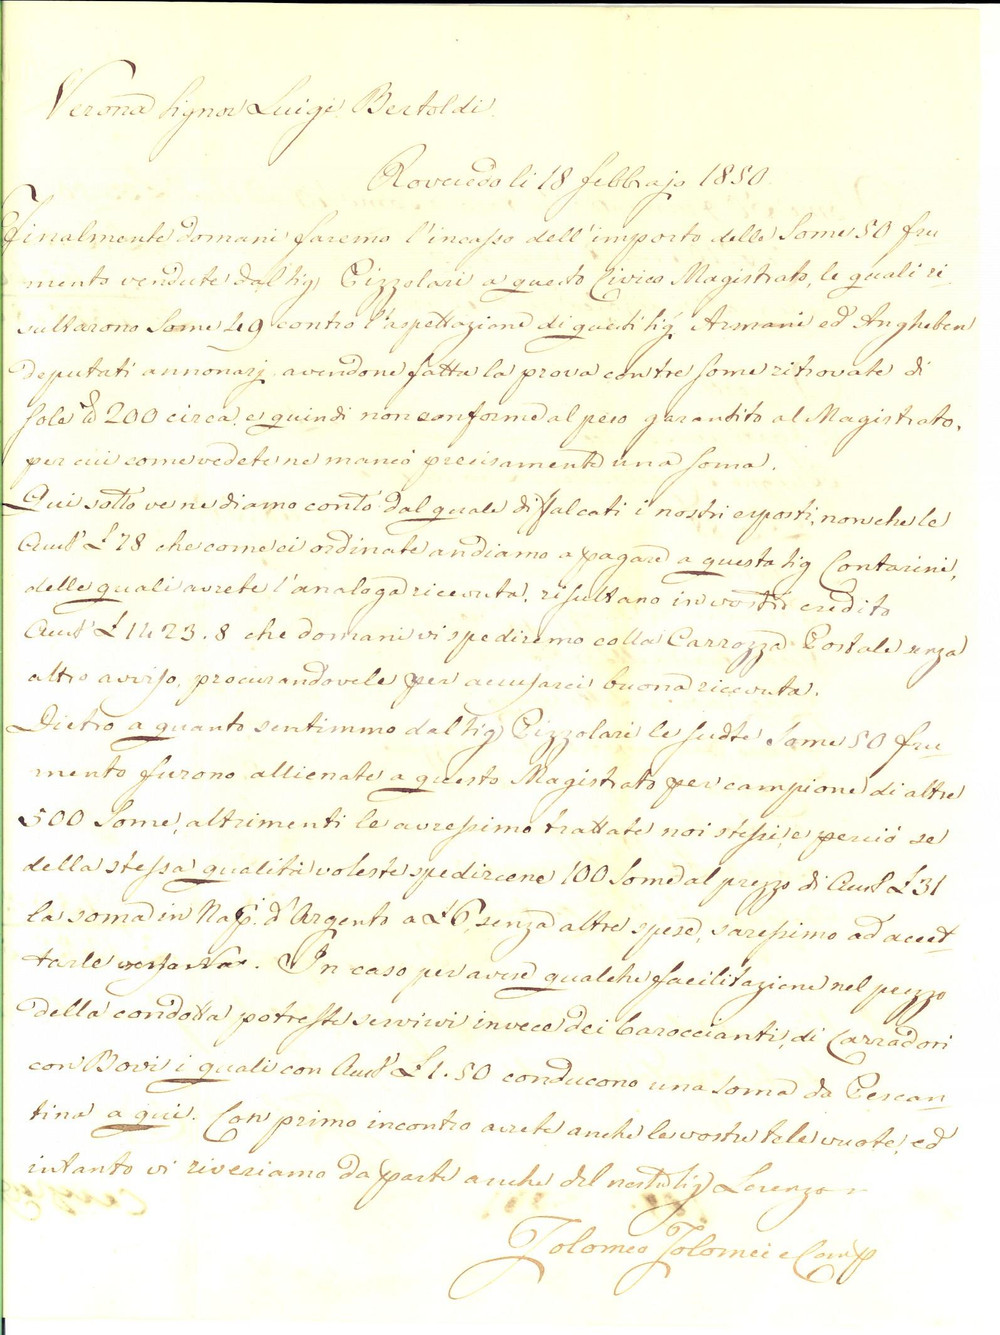 Verona Signor Luigi Bertoldi.
Roveredo li 18 febbrajo 1850
Finalmente domani faremo l'incasso dell'importo delle Some 50 fru
mento vendute dal Sig Pizzolari a questo Civico Magistrato, le quali ri
sultarono Some 49 contro l'aspettazione di questi Sig Armani ed Angheben
deputati annonarj avendone fatta la prova con tre some ritrovate di
sole 200 circa, e quindi non conforme al peso garantito al Magistrato,
per cui come vedete ne mancò precisamente una soma.
Qui sotto ve ne diamo conto dal quale diffalcati i nostri esposti, nonche le
Aust £ 78 che come ci ordinate andiamo a pagare a questa Sig Contarini,
delle quali avrete l'analoga ricevuta, risultano in vostro credito
Aust £ 1423.8 che domani vi spediremo colla Carrozza Postale senza
altro avviso, procurandovele per accusarci buona ricevuta.
Dietro a quanto sentimmo dal Sig Pizzolari le sudte Some 50 fru
mento furono allienate a questo Magistrato per campione di altre
500 Some, altrimenti le avressimo trattate noi stessi, e perciò se
della stessa qualità voleste spedircene 100 Some al prezzo di Aust £ 31
la soma in Nap. d'Argento a £ 6, senza altre spese, saressimo ad accet
tarle. In caso per avere qualche facilitazione nel prezzo
della condotta potreste servirvi invece dei baroccianti, di Carradori
con Bovi i quali con Aust £ 1.50 conducono una soma da Pescan
tina a qui. Con primo incontro avrete anche le vostre tele vuote, ed
intanto vi riveriamo da parte anche del nostro Sig Lorenzo
Tolomeo Tolomei e Comp